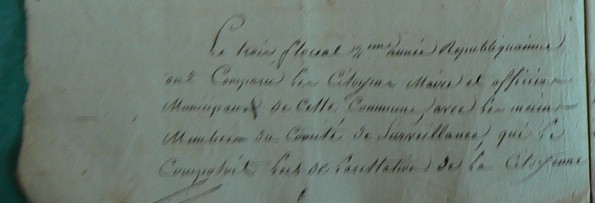 Le trois floreal 2eme année Republiquainne
ont Comparu les Citoyens Maire et officiers
Municipaux de cette Commune, avec les
Membres du Comité de Surveillance, qui le
de la Citoyenne